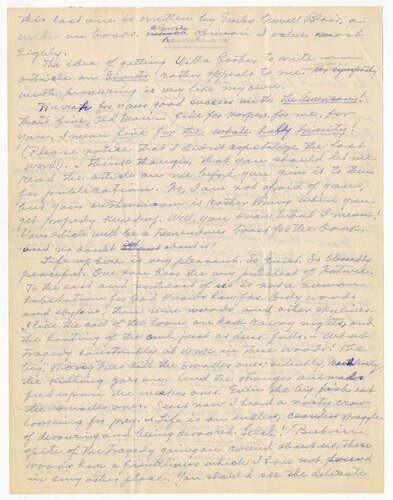 this last one is written by Emily Newell Blair, a
writer on books, a woman whose opinion I value most
highly.
The idea of getting Willa Cather to write an
article on Giants rather appeals to me. Her sympathy
with pioneering is very like my own.
Hurrah for your good success with The American!
That's fine, Old Man. Fine for Harper, for me, for
you, I mean fine for the whole holy trinity!
(Please notice that I didn't capitalize the last
word!). I think though, that you should let me
read the article on me before you give it to them
for publication. No, I am not afraid of you,
but your enthusiasm is rather strong when you
get properly keyed up. Well, you know what I mean!
Your article will be a tremendous boost for the book,
and no doubt about it!
Life up here is very pleasant. So quiet. So blessedly
peaceful. One can hear the very pulsebeat of Nature.
To the east and northeast of us is not a human
habitation for God knows how far. Only woods
and skyline, then more woods and other skylines.
I like the call of the loons on dark rainy nights, and
the hooting of the owl just as dusk falls. - What
tragedy constantly at work in these woods! The
big, strong ones kill the smaller ones; silently,
the killing goes on. And the stronger animals
feed upon the weaker ones. Even the big fish eat
the smaller ones. Just now I heard a hoarse crow
looking for prey. - Life is an endless, ceaseless struggle
of devouring and being devoured. Selah! But in
spite of the tragedy going on round about us, these
woods have a friendliness which I have not found
in any other place. You should see the delicate